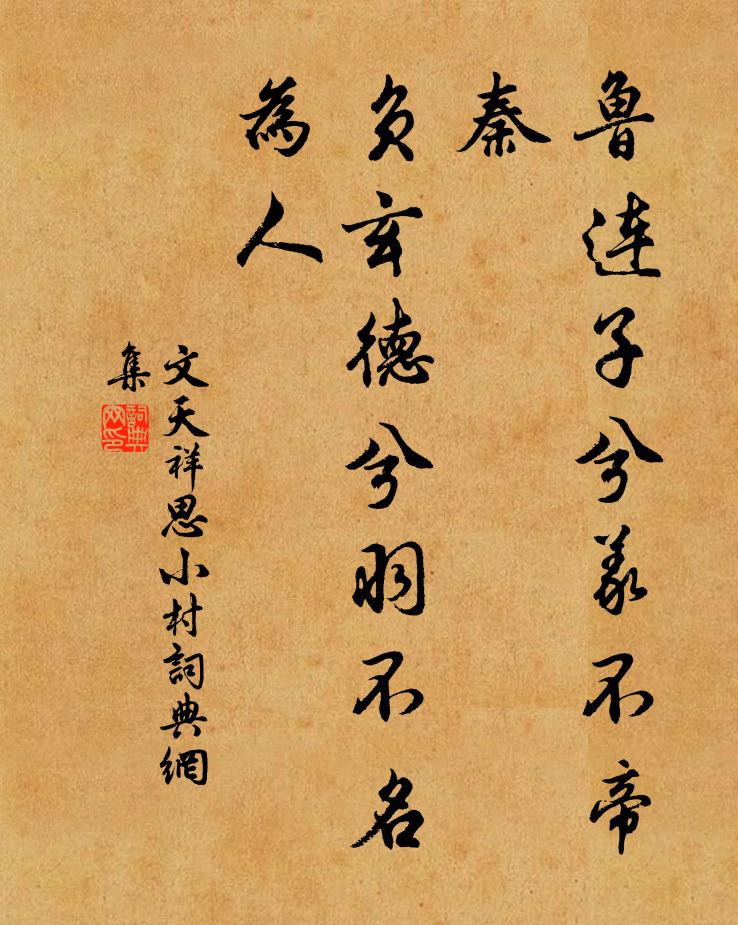 魯連子兮義不帝
秦
負玄德兮羽不名
為人
文天祥思小村詞典網
集
詞典
网印